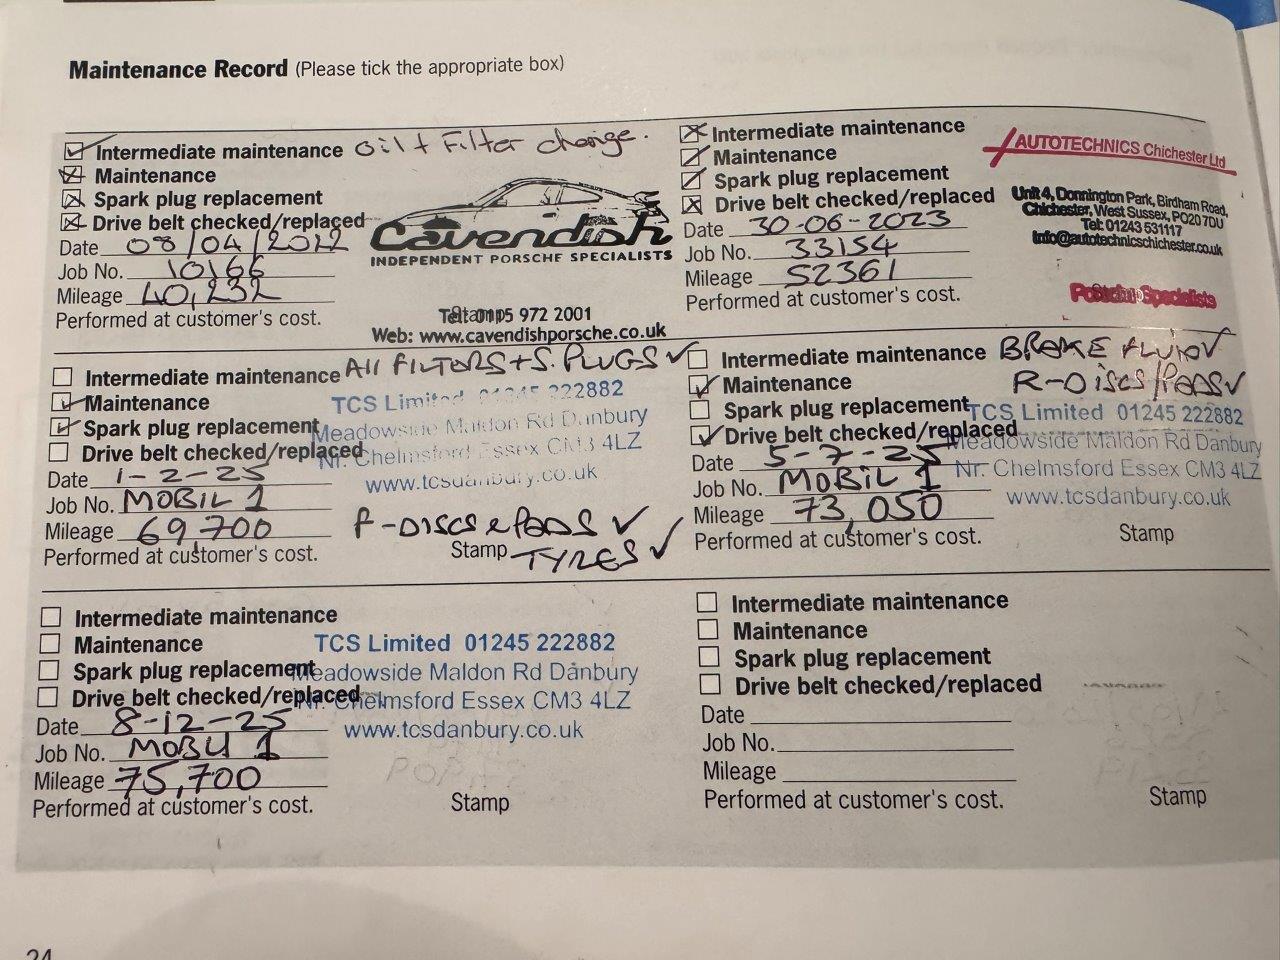 Maintenance Record (Please tick the appropriate box)
Intermediate maintenance Oil + Filter change.
Maintenance
Spark plug replacement
Drive belt checked/replaced
Date 08/04/2012
Job No. 10166
Mileage 40,232
Performed at customer's cost.
Cavendish
INDEPENDENT PORSCHE SPECIALISTS
Stamp
Tel: 0115 972 2001
Web: www.cavendishporsche.co.uk
Intermediate maintenance
Maintenance
Spark plug replacement
Drive belt checked/replaced
Date 30-06-2023
Job No. 33154
Mileage 52361
Performed at customer's cost.
AUTOTECHNICS Chichester Ltd
Unit 4, Donnington Park, Birdham Road,
Chichester, West Sussex, PO20 7DU
Tel: 01243 531117
info@autotechnicschichester.co.uk
Specialists
Intermediate maintenance All FILTORS + S. PLUGS ✓
Maintenance
Spark plug replacement
Drive belt checked/replaced
Date 1-2-25
Job No. MOBIL 1
Mileage 69,700
Performed at customer's cost.
TCS Limited 01245 222882
Meadowside Maldon Rd Danbury
Nr. Chelmsford Essex CM3 4LZ
www.tcsdanbury.co.uk
F-DISCS & PADS ✓
Stamp TYRES ✓
Intermediate maintenance BRAKE FLUID ✓
Maintenance R-DiSCS/PADS ✓
Spark plug replacement
Drive belt checked/replaced
Date 5-7-25
Job No. MOBIL 1
Mileage 73,050
Performed at customer's cost.
TCS Limited 01245 222882
Meadowside Maldon Rd Danbury
Nr. Chelmsford Essex CM3 4LZ
www.tcsdanbury.co.uk
Stamp
Intermediate maintenance
Maintenance
Spark plug replacement
Drive belt checked/replaced
Date 8-12-25
Job No. MOBIL 1
Mileage 75,700
Performed at customer's cost.
TCS Limited 01245 222882
Meadowside Maldon Rd Danbury
Nr. Chelmsford Essex CM3 4LZ
www.tcsdanbury.co.uk
Stamp
Intermediate maintenance
Maintenance
Spark plug replacement
Drive belt checked/replaced
Date
Job No.
Mileage
Performed at customer's cost.
Stamp
24